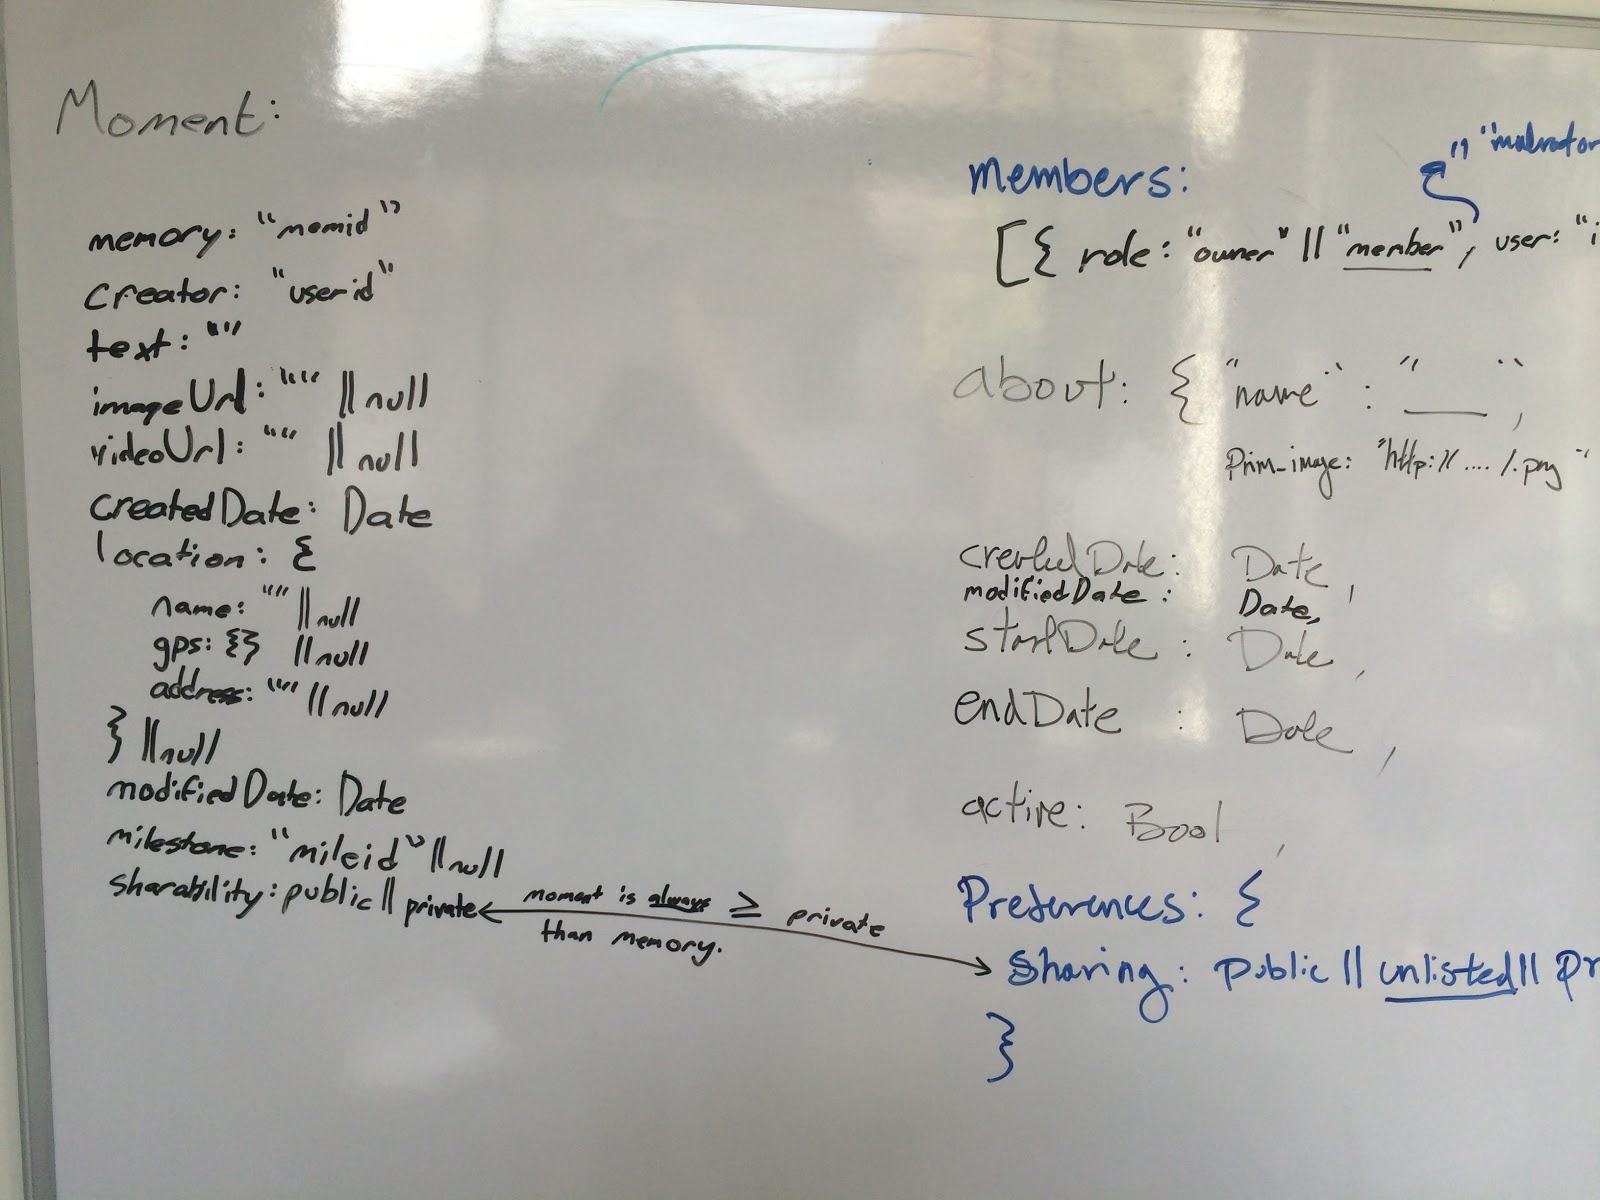 Moment:
memory: "memid"
creator: "userid"
text: ""
imageUrl: "" || null
videoUrl: "" || null
createdDate: Date
location: {
name: "" || null
gps: {} || null
address: "" || null
} || null
modifiedDate: Date
milestone: "mileid" || null
sharability: public || private
moment is always ≥ private
than memory.
members:
||
[{ role: "owner" || "member", user: "i
about: { "name": "___",
Prim_image: "http:// .... /.png"
createdDate: Date,
modifiedDate: Date,
startDate: Date,
endDate: Date,
active: Bool,
Preferences: {
Sharing: public || unlisted || pr
}